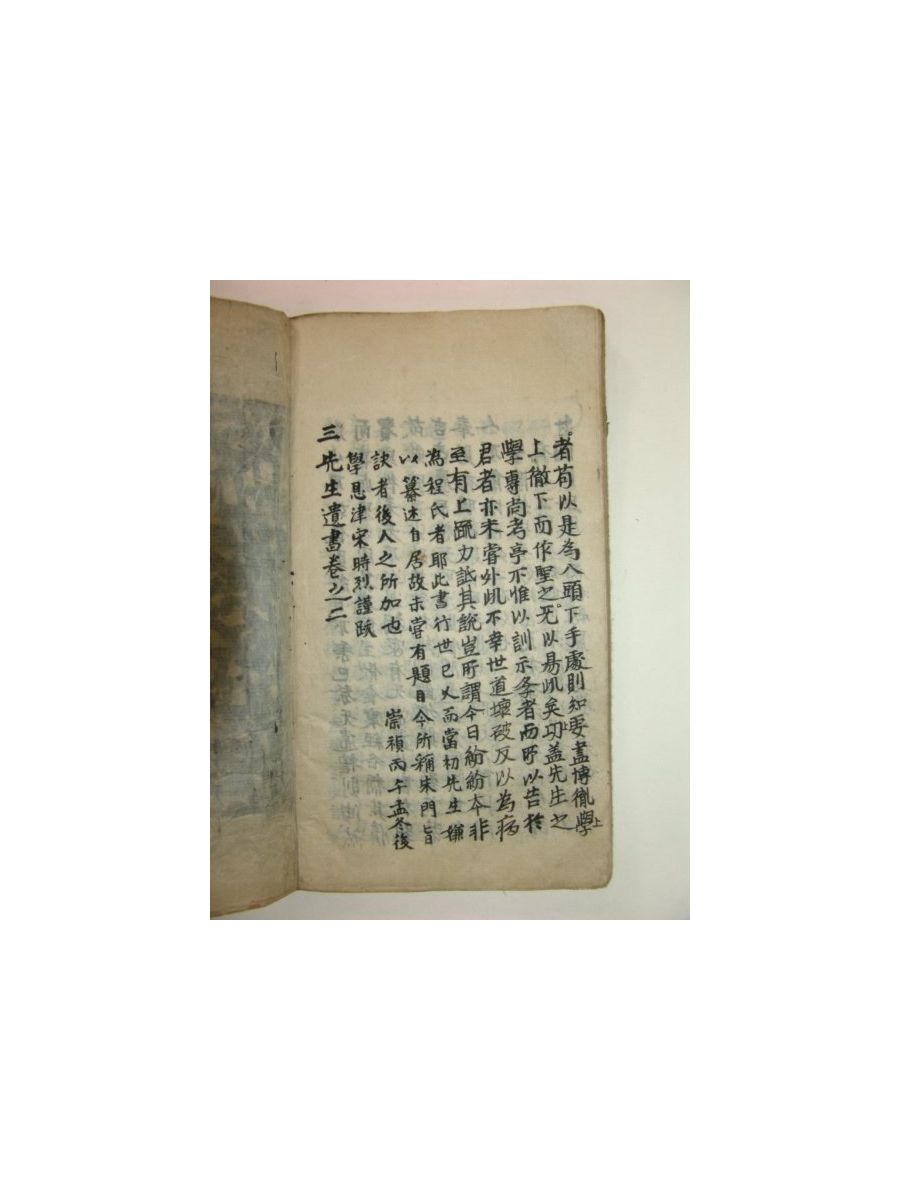 者苟以是為入頭下手處則知要盡博徹學上
上徹下而作聖之旡以易此矣功盖先生之
學專尚考亭不惟以訓示學者而所以告於
君者亦未嘗外此不幸世道壞破反以為病
至有上疏力詆其說豈所謂今日紛紛本非
為程氏者耶此書行世已久而當初先生嫌
以纂述自居故未嘗有題目今所稱朱門旨
訣者後人之所加也 崇禎丙午孟冬後
學恩津宋時烈謹跋
三先生遺書卷之二